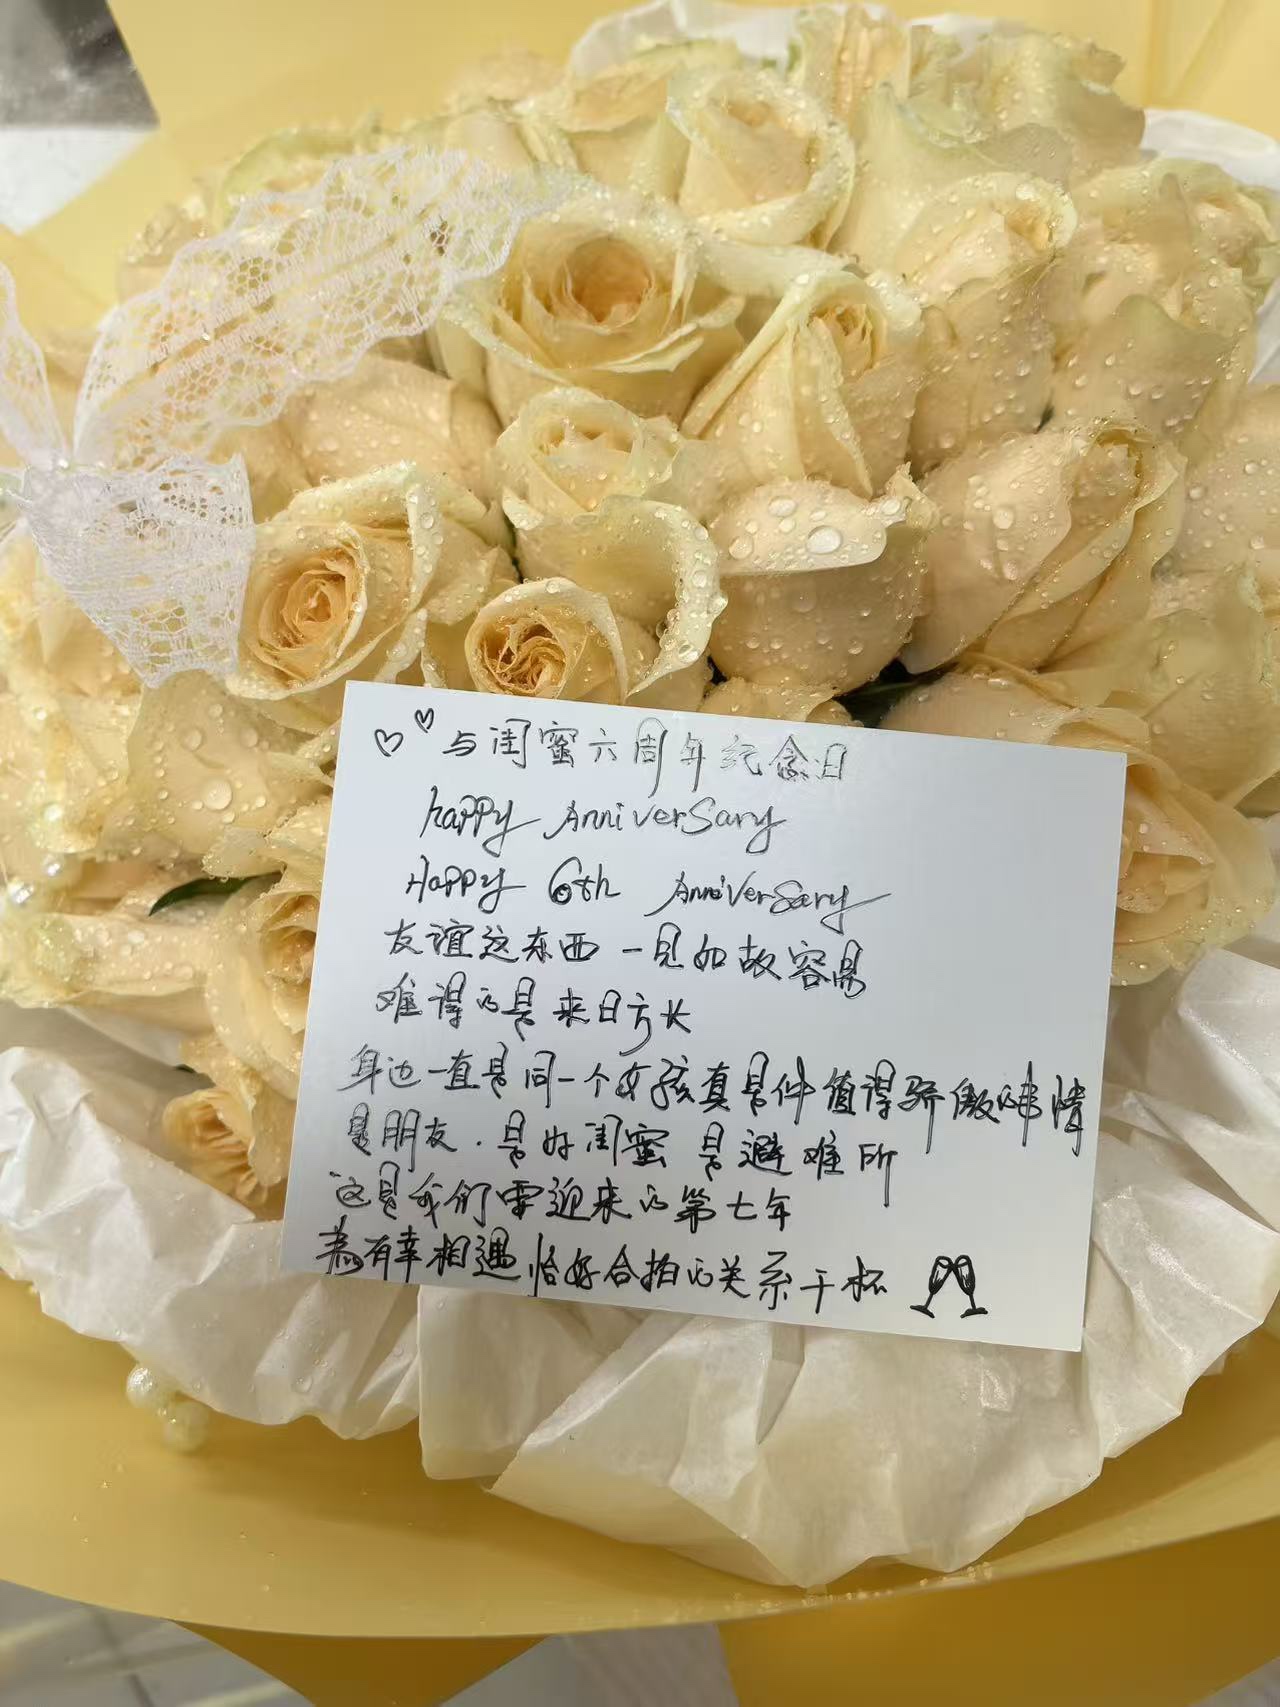 与闺蜜六周年纪念日
happy AnniverSary
HaPPy 6th AnniverSary
友谊这东西 一见如故容易
难得的是来日方长
身边一直是同一个女孩真是件值得骄傲的事情
是朋友.是好闺蜜 是避难所
这是我们要迎来的第七年
为有幸相遇 恰好合拍的关系干杯